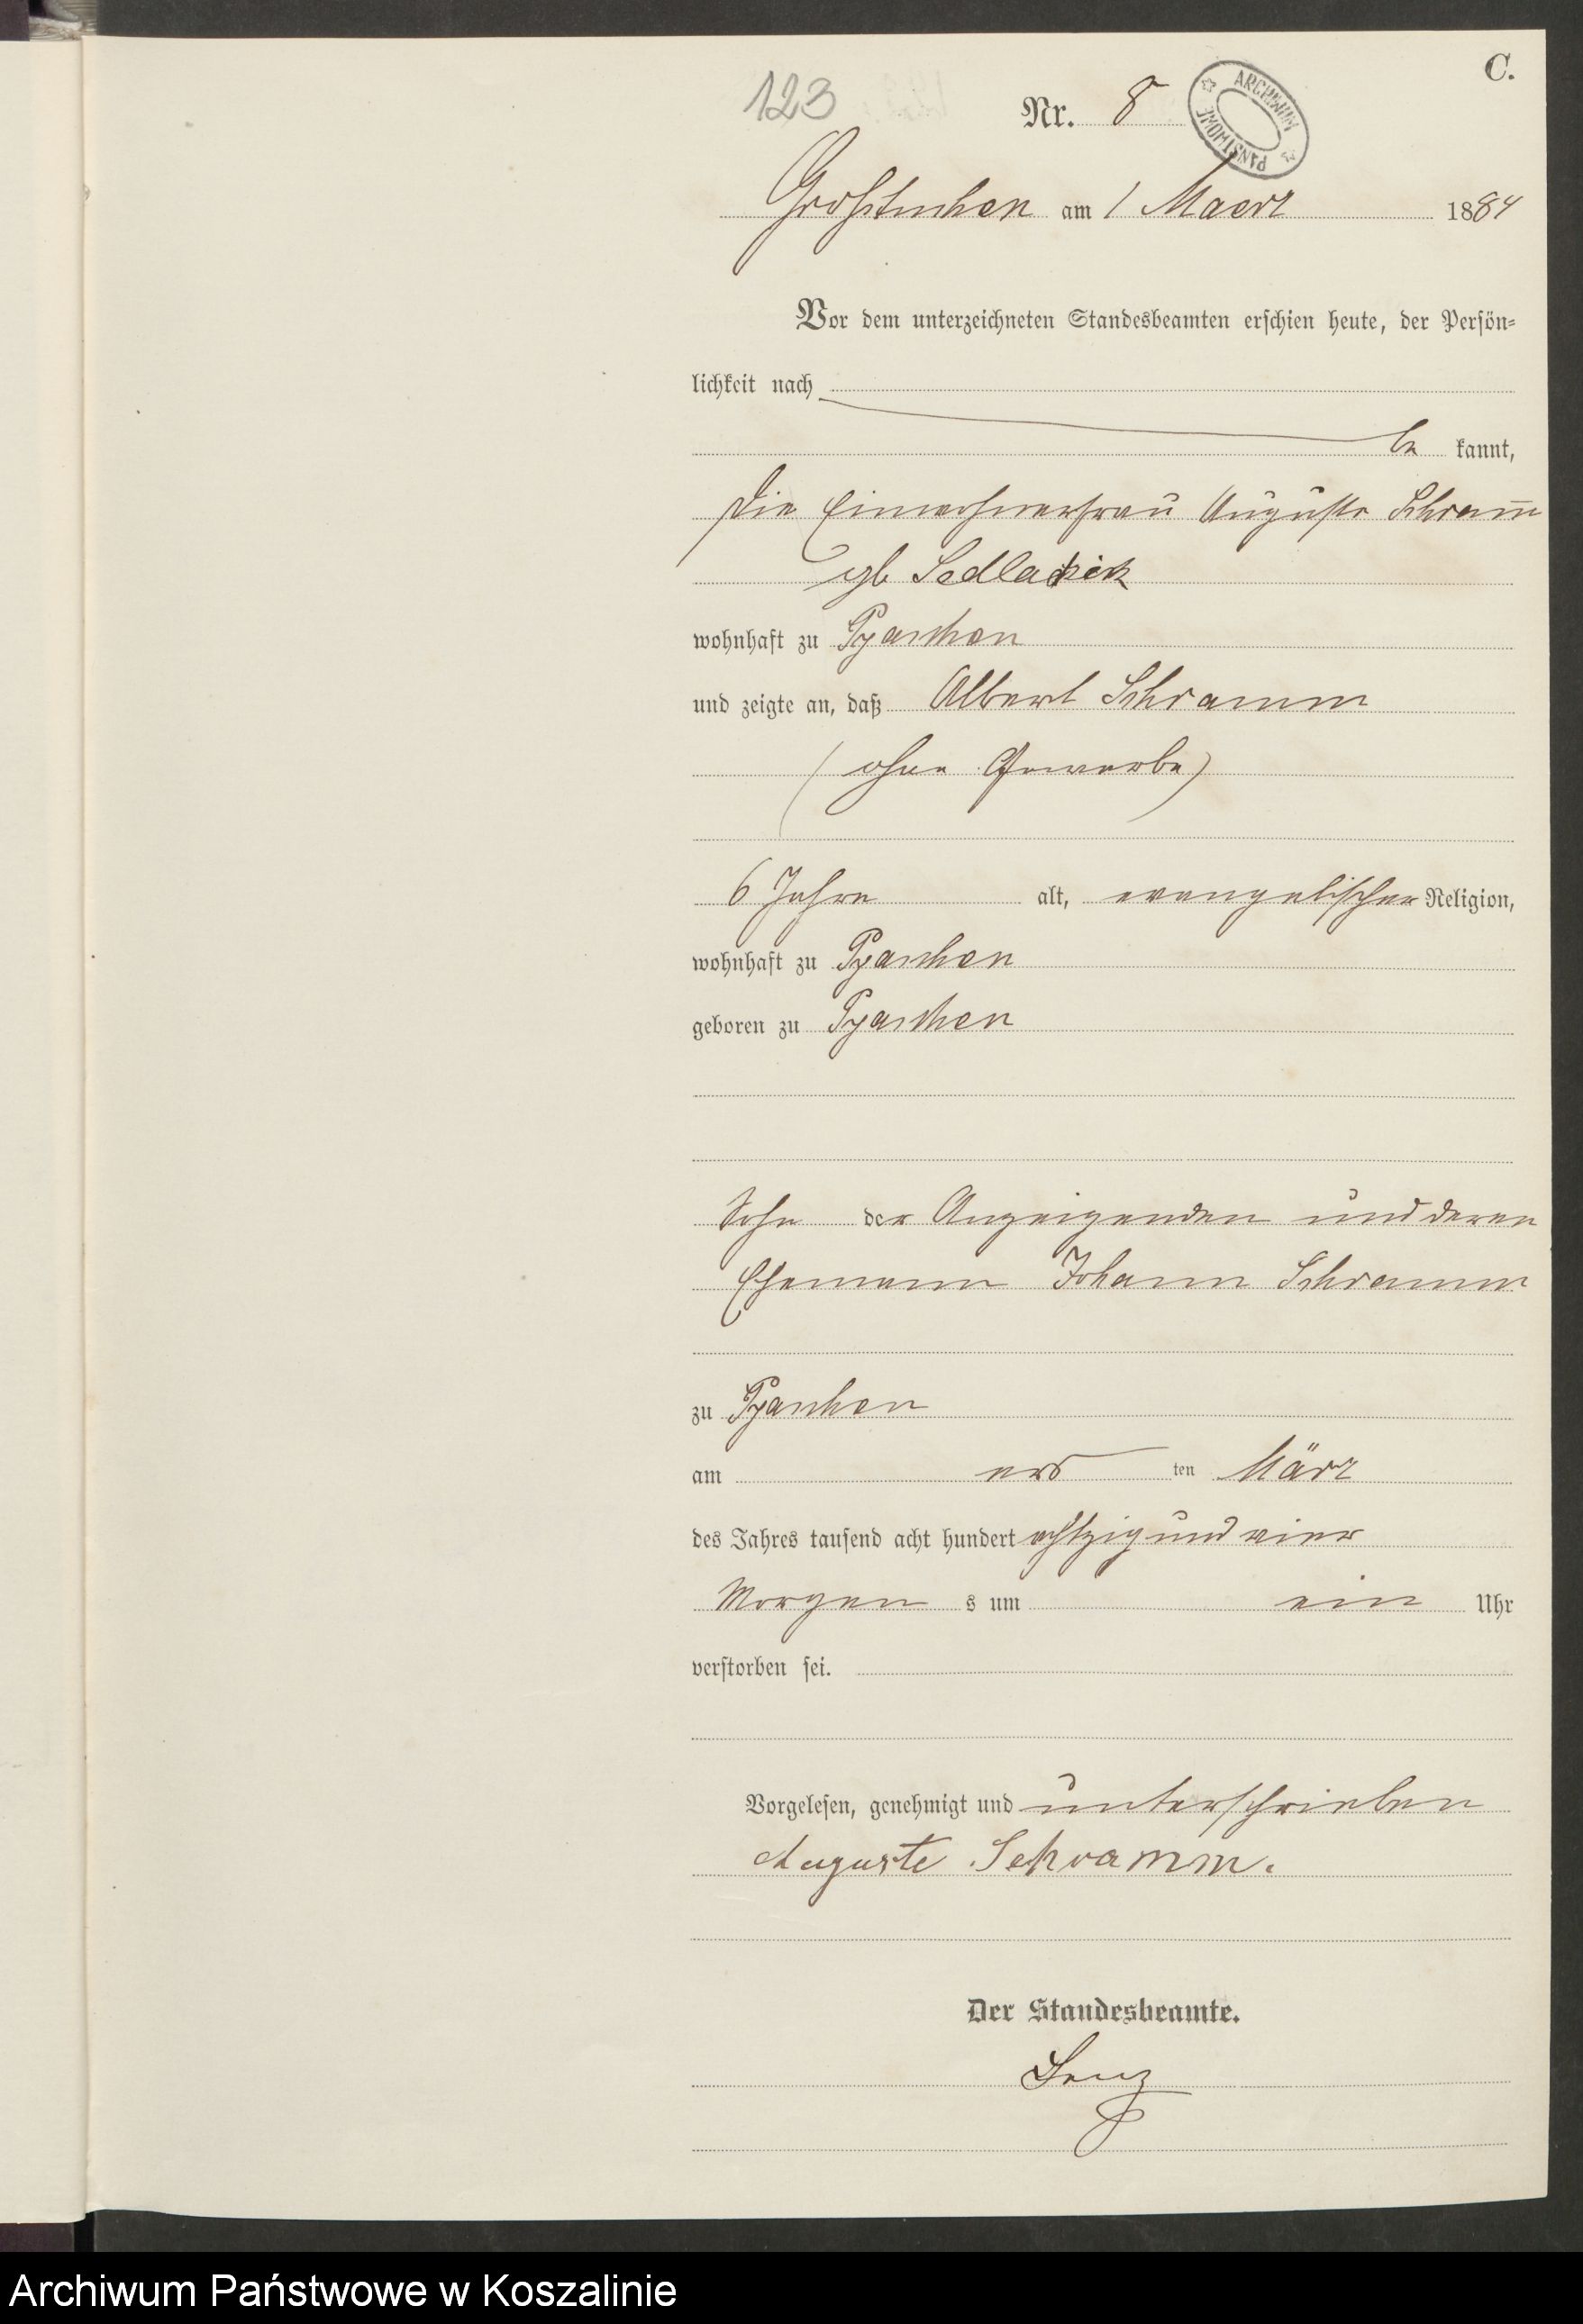 C.
123
Nr. 8
ARCHIWUM PAŃSTWOWE
Großtuchen am 1 Maerz 1884
Vor dem unterzeichneten Standesbeamten erschien heute, der Persön-
lichkeit nach
be kannt,
die Einwohnerfrau Auguste Schram̅
geb
wohnhaft zu Pyaschen
und zeigte an, daß Albert Schramm
(ohne Gewerbe)
6 Jahre alt, evangelischer Religion,
wohnhaft zu Pyaschen
geboren zu Pyaschen
Sohn der Anzeigenden und deren
Ehemann Johann Schramm
zu Pyaschen
am ers ten März
des Jahres tausend acht hundert achtzig und vier
Morgen s um ein Uhr
verstorben sei.
Vorgelesen, genehmigt und unterschrieben
Auguste Schramm.
Der Standesbeamte.
Lenz
Archiwum Państwowe w Koszalinie